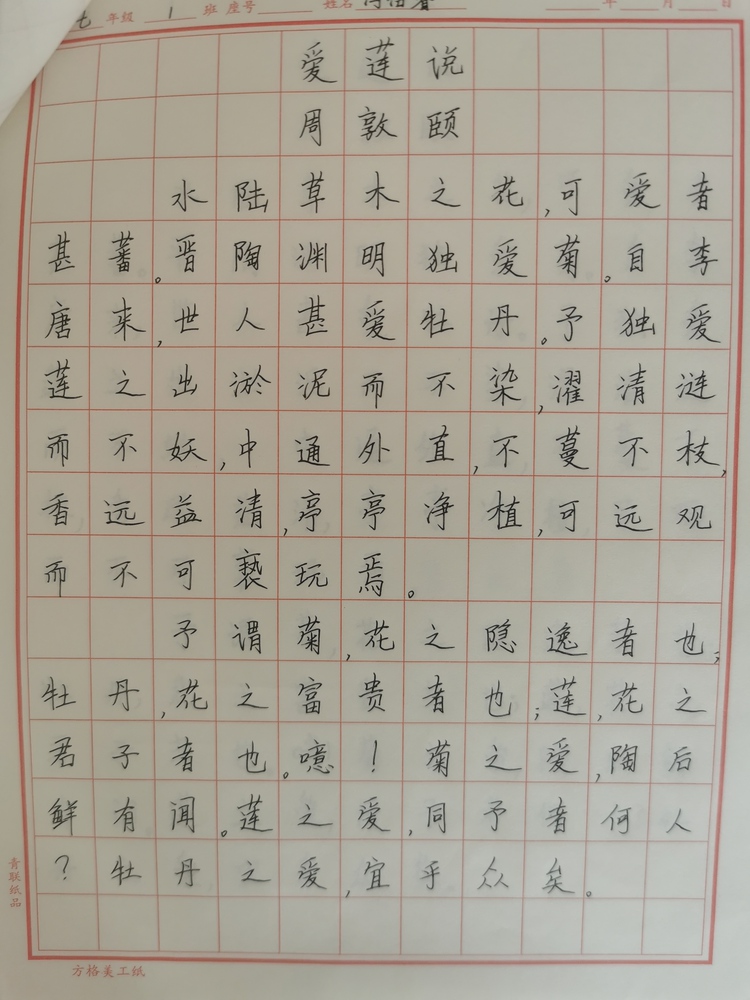 七 年级 1 班 座号 姓名 年 月 日
爱莲说
周敦颐
水陆草木之花,可爱者
甚蕃。晋陶渊明独爱菊。自李
唐来,世人甚爱牡丹。予独爱
莲之出淤泥而不染,濯清涟
而不妖,中通外直,不蔓不枝,
香远益清,亭亭净植,可远观
而不可亵玩焉。
予谓菊,花之隐逸者也;
牡丹,花之富贵者也;莲,花之
君子者也。噫!菊之爱,陶后
鲜有闻。莲之爱,同予者何人
?牡丹之爱,宜乎众矣。
青联纸品
方格美工纸